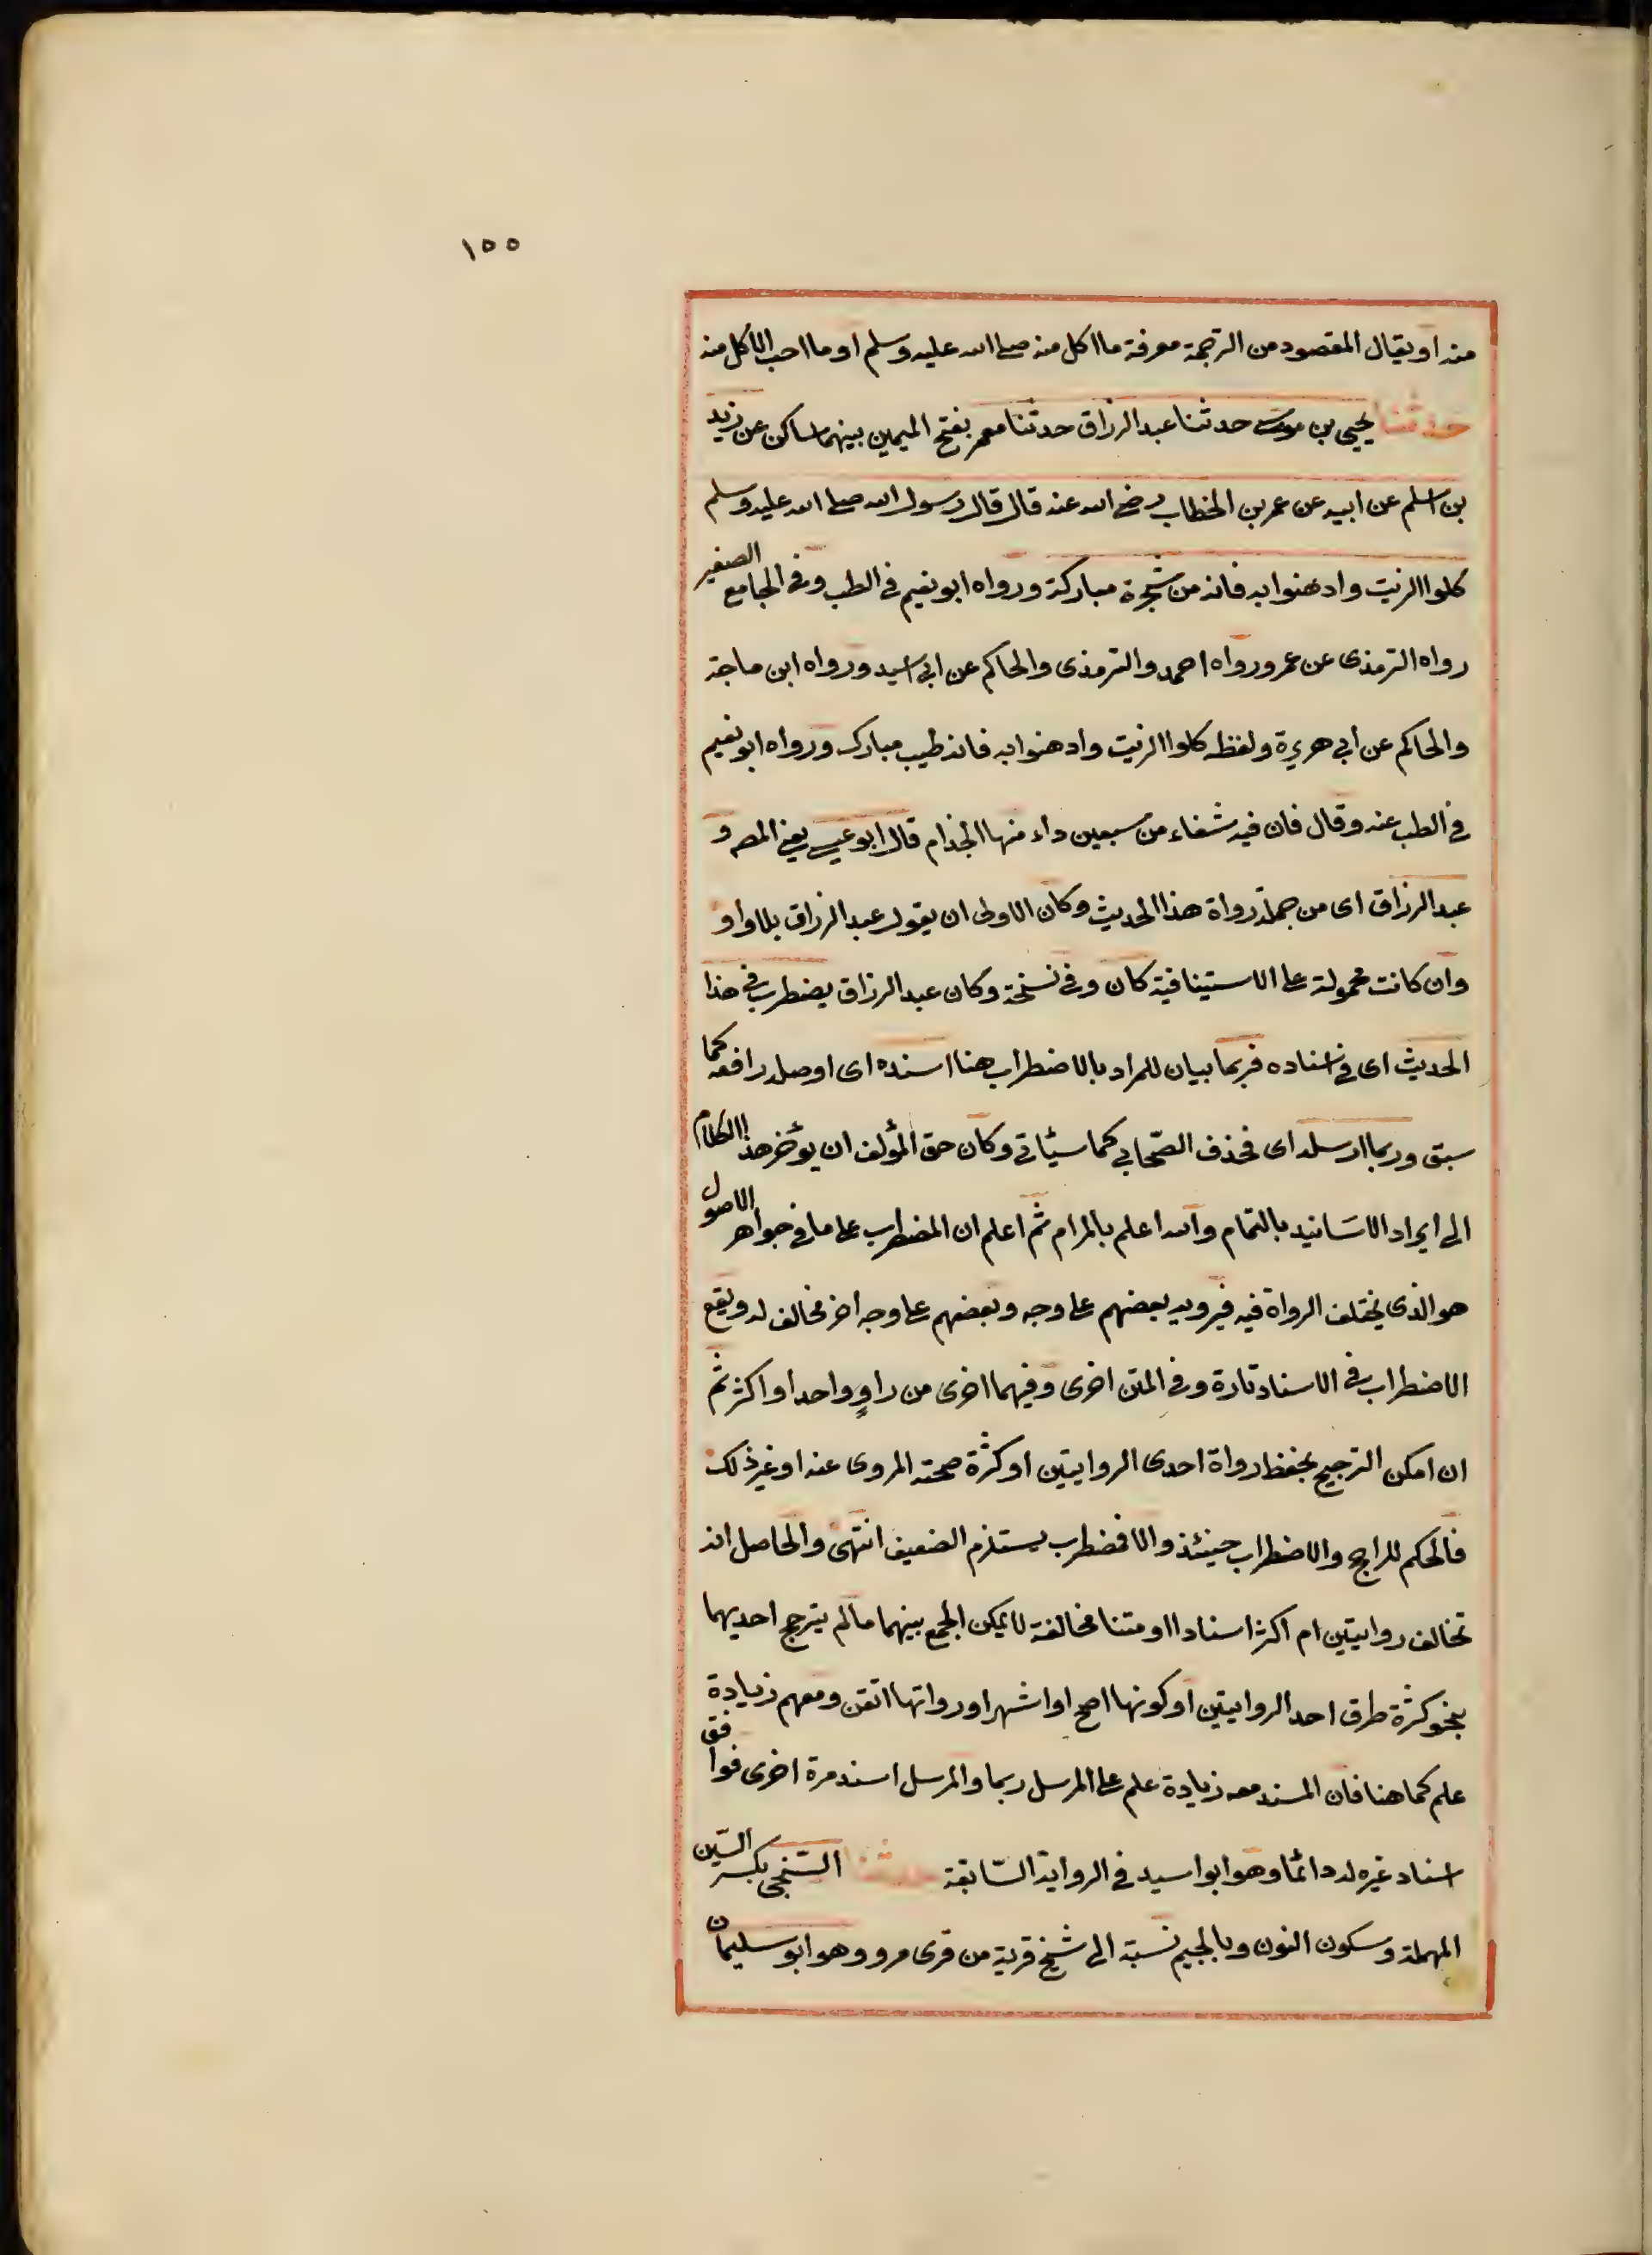 ١٥٥
منه او يقال المقصود من الترجمة معرفة ما اكل منه صلى الله عليه وسلم او ما احب الاكل منه
حدثنا يحيى بن موسى حدثنا عبد الرزاق حدثنا معمر بفتح الميمين بينهما ساكن عن زيد
بن اسلم عن ابيه عن عمر بن الخطاب رضي الله عنه قال قال رسول الله صلى الله عليه وسلم
كلوا الزيت وادهنوا به فانه من شجرة مباركة ورواه ابو نعيم في الطب وفي الجامع الصغير
رواه الترمذي عن عمر ورواه احمد والترمذي والحاكم عن ابي اسيد ورواه ابن ماجة
والحاكم عن ابي هريرة ولفظه كلوا الزيت وادهنوا به فانه طيب مبارك ورواه ابو نعيم
في الطب عنه وقال فان فيه شفاء من سبعين داء منها الجذام قال ابو عيسى يعني المصـ و
عبد الرزاق اى من جملة رواة هذا الحديث وكان الاولى ان يقول عبد الرزاق بلا واو
وان كانت محمولة على الاستينافية كان وفي نسخة وكان عبد الرزاق يضطرب في هذا
الحديث اى في اسناده فربما بيان للمراد بالاضطراب هنا اسنده اى اوصله رافعه كما
سبق وربما ارسله اى فحذف الصحابي كما سيئاتي وكان حق المؤلف ان يؤخر هذا الكلام
الى ايراد الاسانيد بالتمام والله اعلم بالمرام ثم اعلم ان المضطرب على ما في جواهر الاصول
هو الذى يختلف الرواة فيه فيرويه بعضهم على وجه وبعضهم على وجه اخر مخالف له ويقع
الاضطراب في الاسناد تارة وفي المتن اخرى وفيهما اخرى من راوٍ واحد او اكثر ثم
ان امكن الترجيح بحفظ رواة احدى الروايتين او كثرة صحته المروى عنه او غير ذلك
فالحكم للراجح والاضطراب حينئذ والا فمضطرب يستلزم الضعيف انتهى والحاصل انه
تخالف روايتين ام اكثر اسنادا او متنا مخالفة لا يمكن الجمع بينهما مالم يترجح احديهما
بنحو كثرة طرق احد الروايتين او كونها اصح او اشهر او رواتها اتقن ومعهم زيادة
علم كما هنا فان المسند معه زيادة علم على المرسل ربما والمرسل اسند مرة اخرى فوافق
اسناد غيره له دائما وهو ابو اسيد في الرواية السابقة حدثنا السنجى بكسر السين
المهملة وسكون النون وبالجيم نسبة الى شنج قرية من قرى مرو وهو ابو سليمان